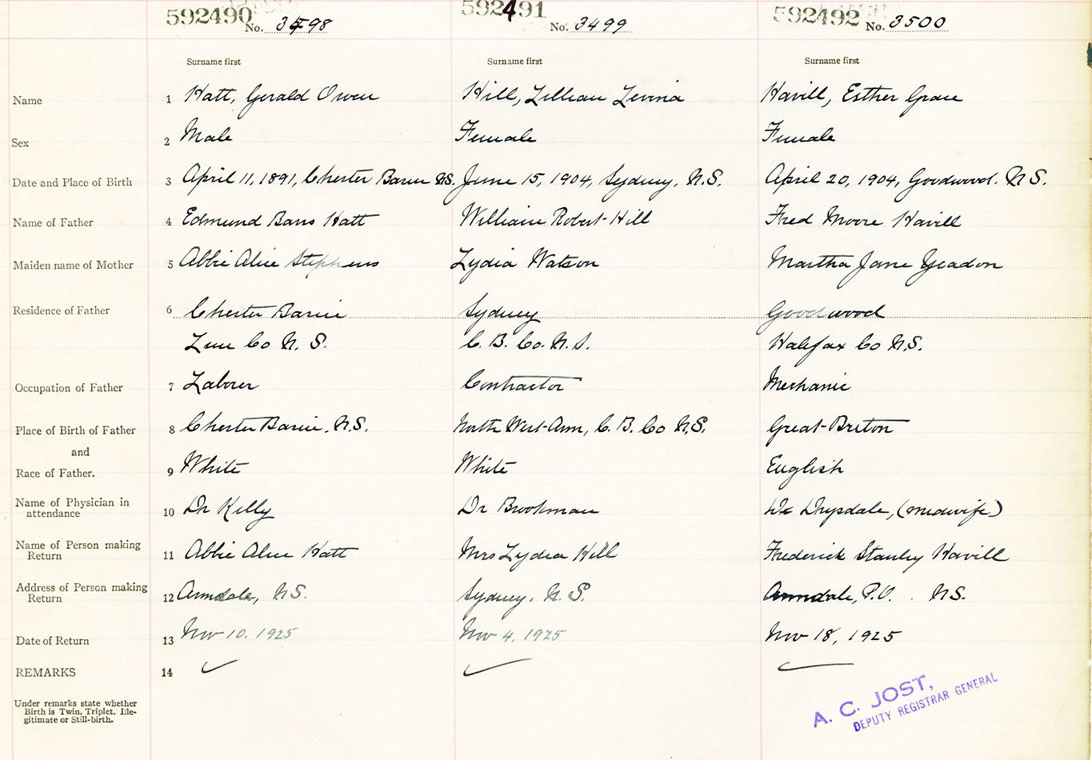 592490 592491 592492
No. 3498 No. 3499 No. 3500
Surname first Surname first Surname first
Name 1 Hatt, Gerald Owen Hill, Lillian Levina Havill, Esther Grace
Sex 2 Male Female Female
Date and Place of Birth 3 April 11, 1891, Chester Basin N.S. June 15, 1904, Sydney, N.S. April 20, 1904, Goodwood. N.S.
Name of Father 4 Edmund Hatt William Robert Hill Fred Moore Havill
Maiden name of Mother 5 Abbie Alice Stephens Lydia Watson Martha Jane Yeadon
Residence of Father 6 Chester Basin Sydney Goodwood
Lun Co N.S. C. B. Co. N.S. Halifax Co N.S.
Occupation of Father 7 Laborer Contractor Mechanic
Place of Birth of Father 8 Chester Basin, N.S. North West Arm, C. B. Co N.S. Great Briton
and
Race of Father. 9 White White English
Name of Physician in
attendance 10 Dr Kelly Dr Brookman Drysdale, (midwife)
Name of Person making
Return 11 Abbie Alice Hatt Mrs Lydia Hill Frederick Stanley Havill
Address of Person making
Return 12 Armdale, N.S. Sydney, N.S. Armdale, P.O. N.S.
Date of Return 13 Nov 10, 1925 Nov 4, 1925 Nov 18, 1925
REMARKS 14
Under remarks state whether
Birth is Twin, Triplet, Ille-
gitimate or Still-birth.
A. C. JOST,
DEPUTY REGISTRAR GENERAL